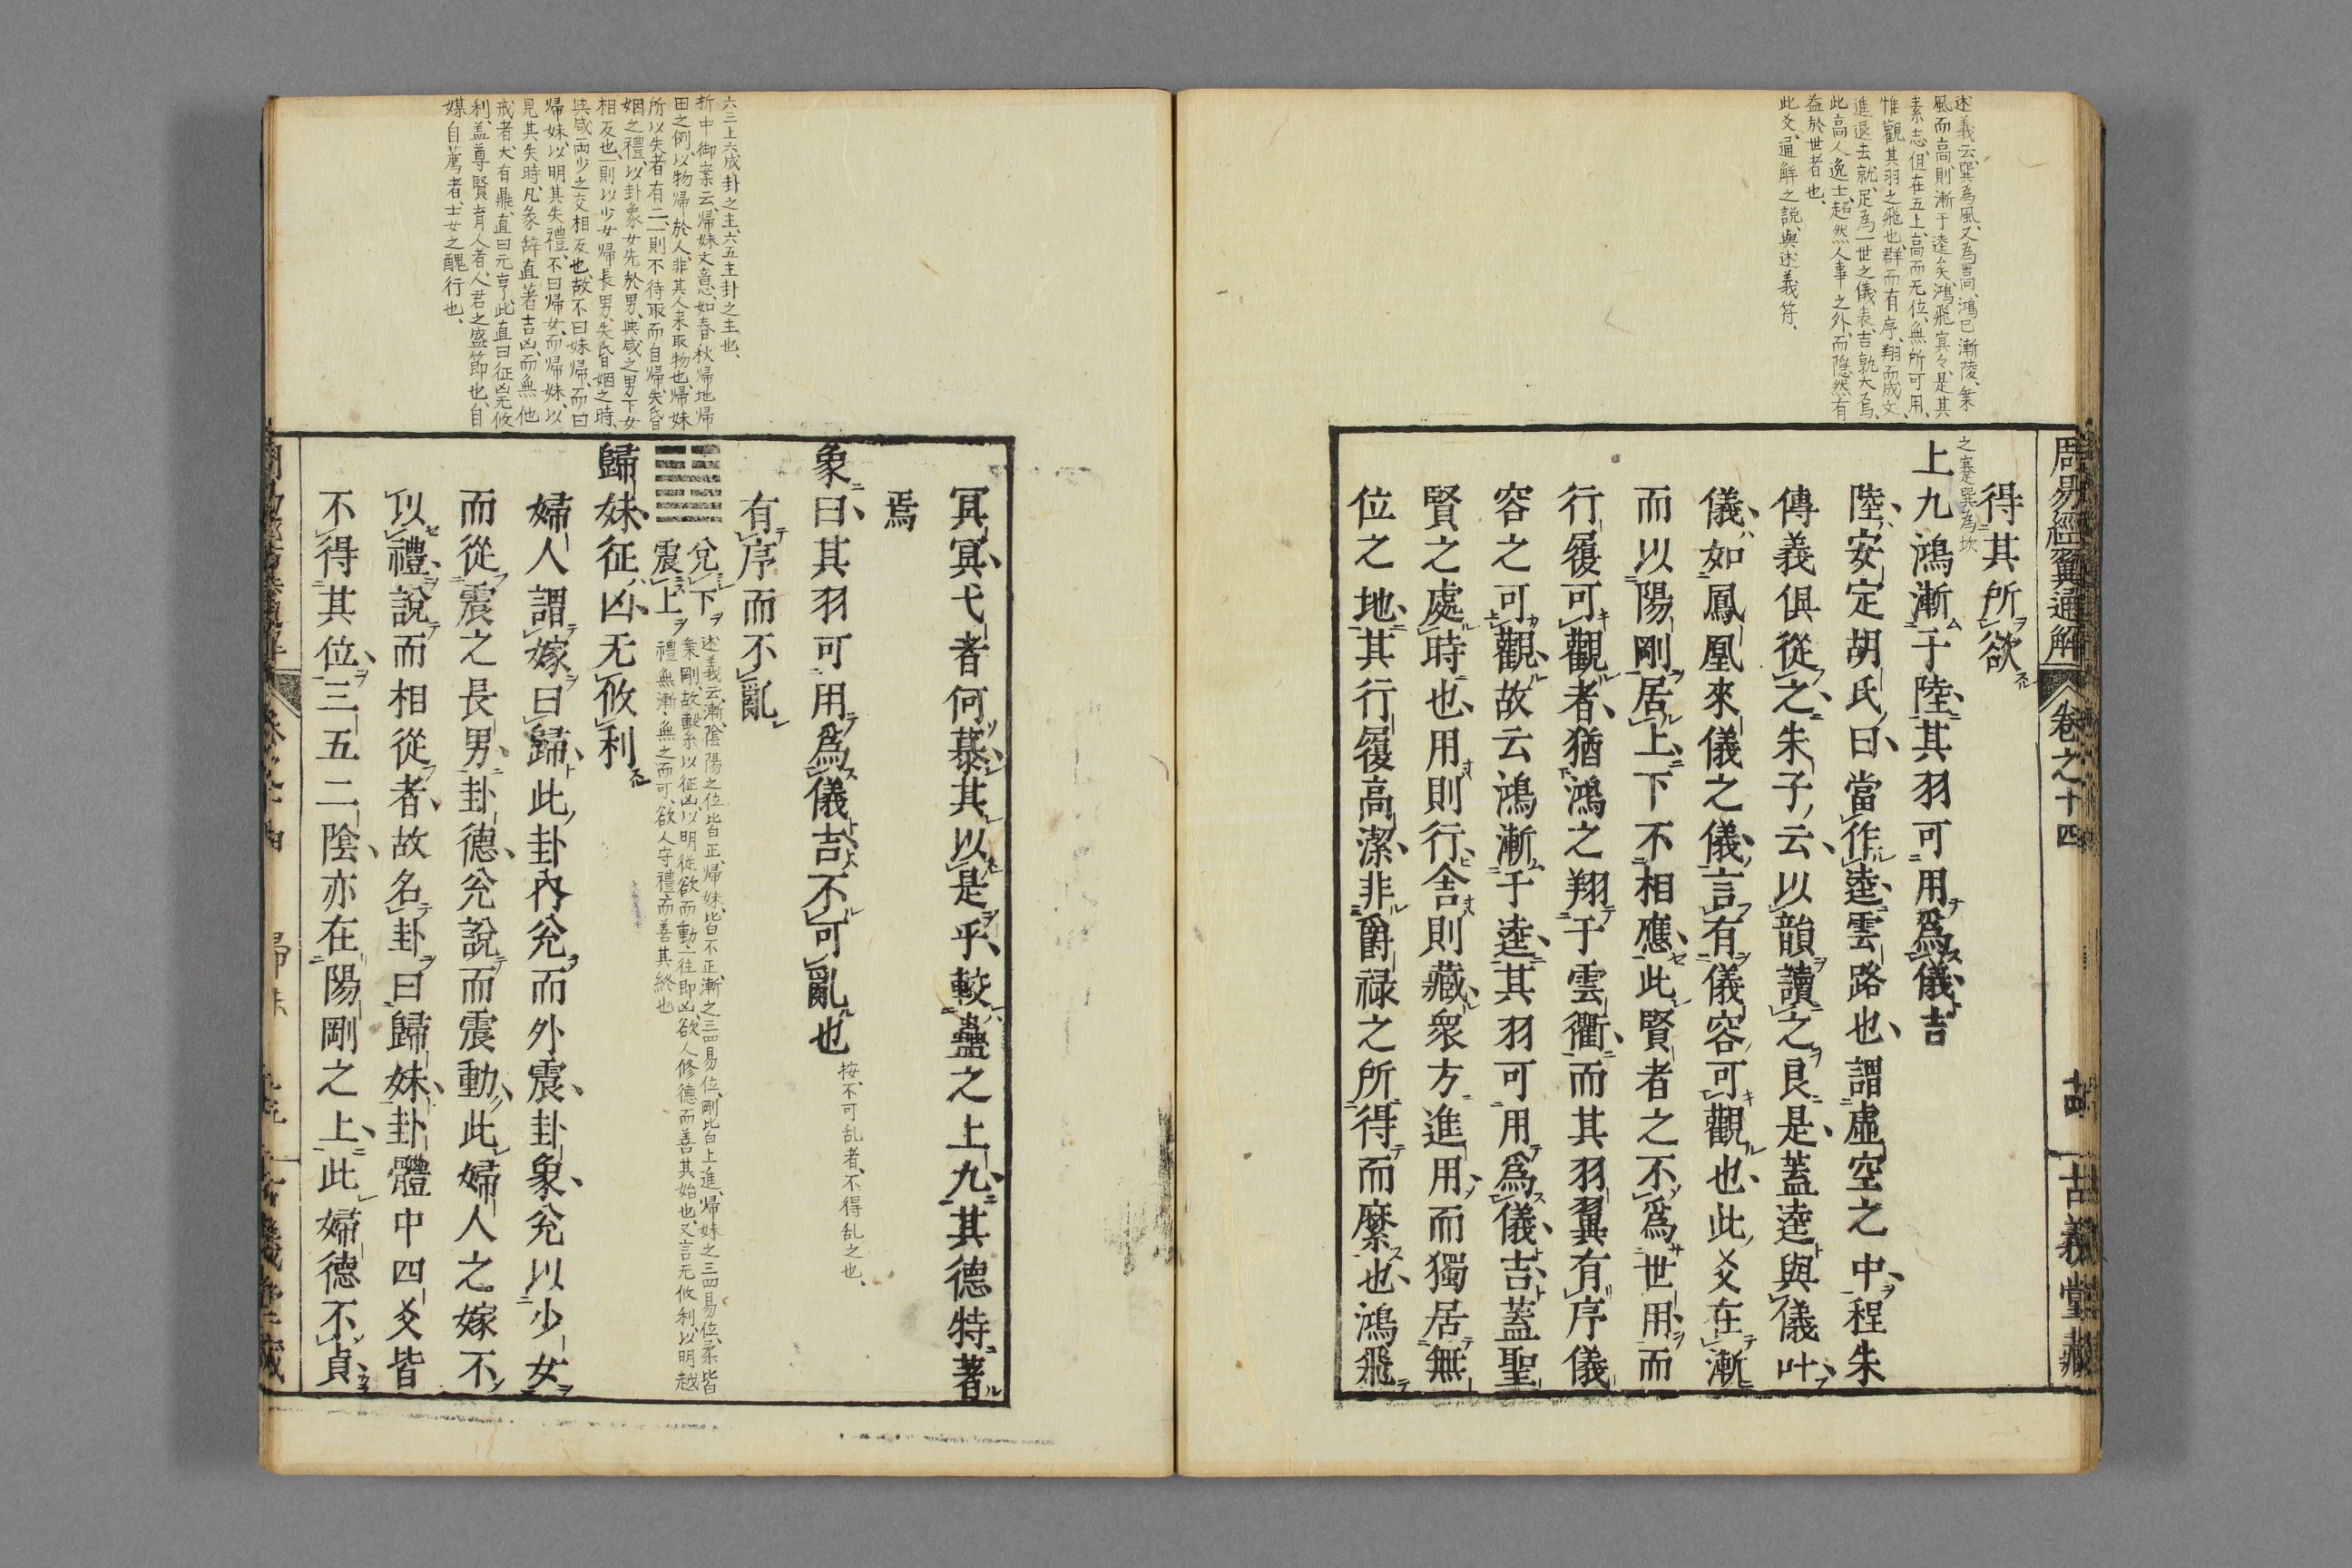 周易經翼通解
卷之十四
十四
古義堂藏
述義云、巽為風、又為高、鴻已漸陵、乗
風而高、則漸于逵矣、鴻飛冥々、是其
素志、但在五上、高而无位、無所可用、
惟觀其羽之飛也、群而有序、翔而成文、
進退去就、足為一世之儀表、吉孰大焉、
此高人逸士、超然人事之外、而隠然有
益於世者也、
此爻、通解之説、與述義符、
得其所欲
之蹇巽為坎
上九鴻漸于陸其羽可用爲儀吉
陸安定胡氏曰當作逵雲路也謂虛空之中程朱
傳義俱從之朱子云以韻讀之良是蓋逵與儀叶
儀如鳳凰來儀之儀言有儀容可觀也此爻在漸
而以陽剛居上下不相應此賢者之不爲世用而
行履可觀者猶鴻之翔于雲衢而其羽翼有序儀
容之可觀故云鴻漸于逵其羽可用爲儀吉蓋聖
賢之處時也用則行舍則藏衆方進用而獨居無
位之地其行履高潔非爵祿之所得而縻也鴻飛
冥冥弋者何慕其以是乎較蠱之上九其德特著
焉
象曰其羽可用爲儀吉不可亂也
按、不可乱者、不得乱之也、
有序而不亂
兌下
震上
述義云、漸、陰陽之位皆正、帰妹、皆不正、漸之三四易位、剛皆上進、帰妹之三四易位、柔皆
乗剛、故繋以征凶、以明従欲而動、往即凶、欲人修德而善其始也、又言无攸利、以明越
禮無漸、無之而可、欲人守禮而善其終也
歸妹征凶无攸利
婦人謂嫁曰歸此卦內兌而外震卦象兌以少女
而從震之長男卦德兌說而震動此婦人之嫁不
以禮說而相從者故名卦曰歸妹卦體中四爻皆
不得其位三五二陰亦在陽剛之上此婦德不貞
六三上六成卦之主、六五主卦之主也、
折中御案云、帰妹文意、如春秋帰地帰
田之例、以物帰於人、非其人来取物也、帰妹
所以失者有二、一則不待取而自帰、失昏
姻之禮、以卦象女先於男、與咸之男下女
相反也、一則以少女帰長男、失昏姻之時、
與咸両少之交相反也、故不曰妹帰、而曰
帰妹、以明其失禮、不曰帰女、而帰妹、以
見其失時、凡彖辭直著吉凶、而無他
戒者、大有鼎、直曰元亨、此直曰征凶无攸
利、盖尊賢育人者、人君之盛節也、自
媒自薦者、士女之醜行也、